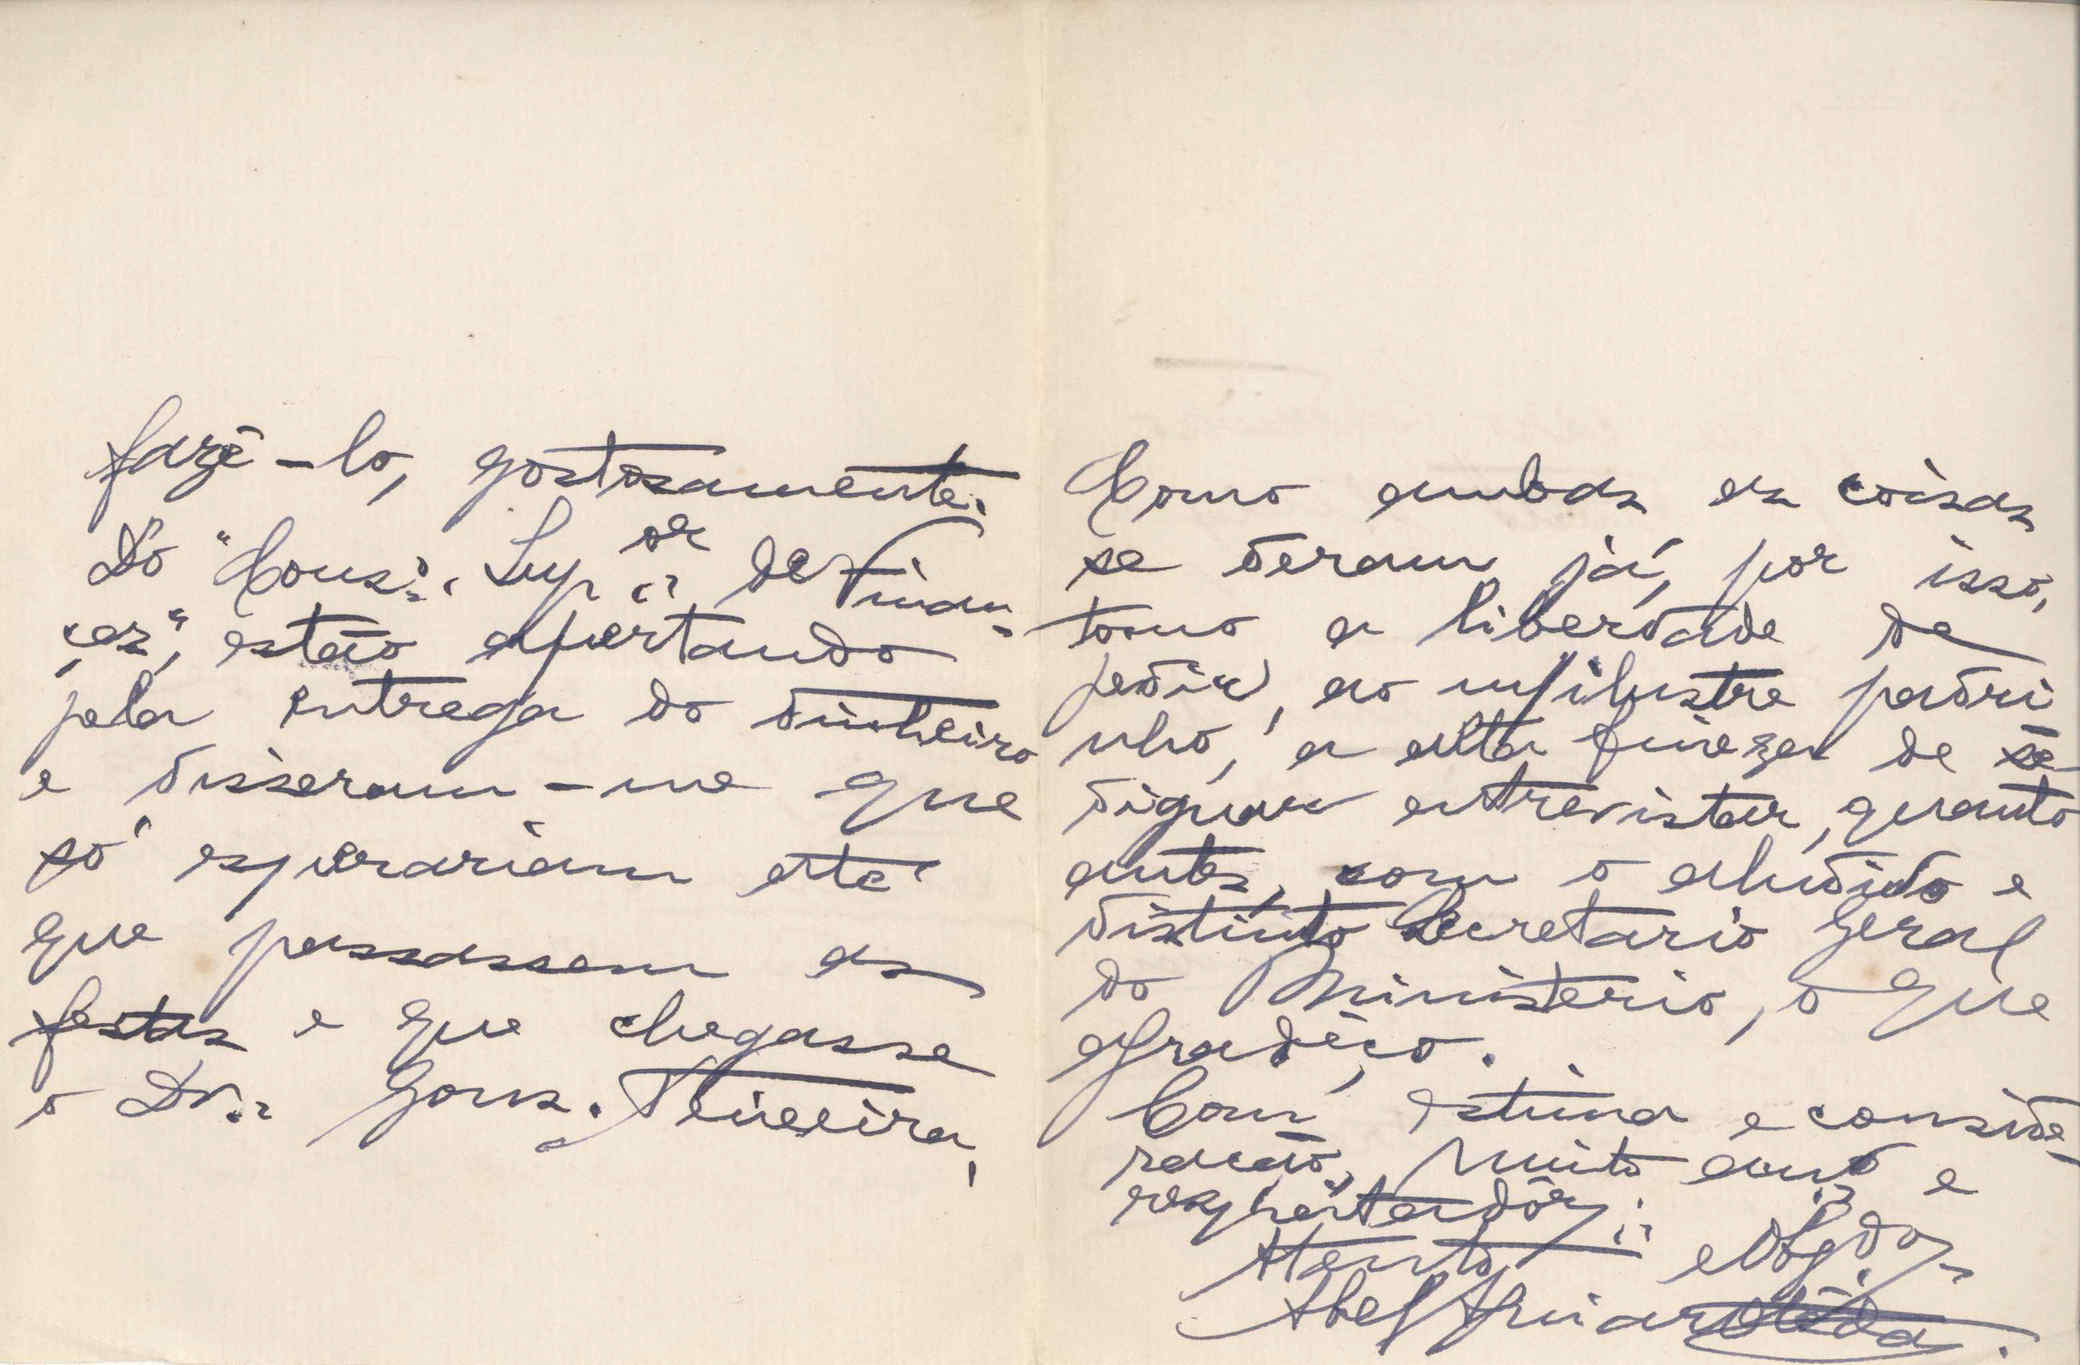 fazê-lo, gostosamente.
Do "Cons.: Sup.or de Finan-
ças", estão apertando
pela entrega do dinheiro
e disseram-me que
só esperariam até
que passassem as
festas e que chegasse
o Dr. Gons. Teixeira,
Como ambas as coisas
se deram já, por isso,
tomo a liberdade de
pedir, ao m/ilustre padri
nho, a alta fineza de se
dignar entrevistar, quanto
antes, com o aludido e
distinto Secretario Geral
do Ministerio, o que
agradeço.
Com estima e conside-
ração, muito am.o e
respeitador;
Atento e Obgdo,
Abel